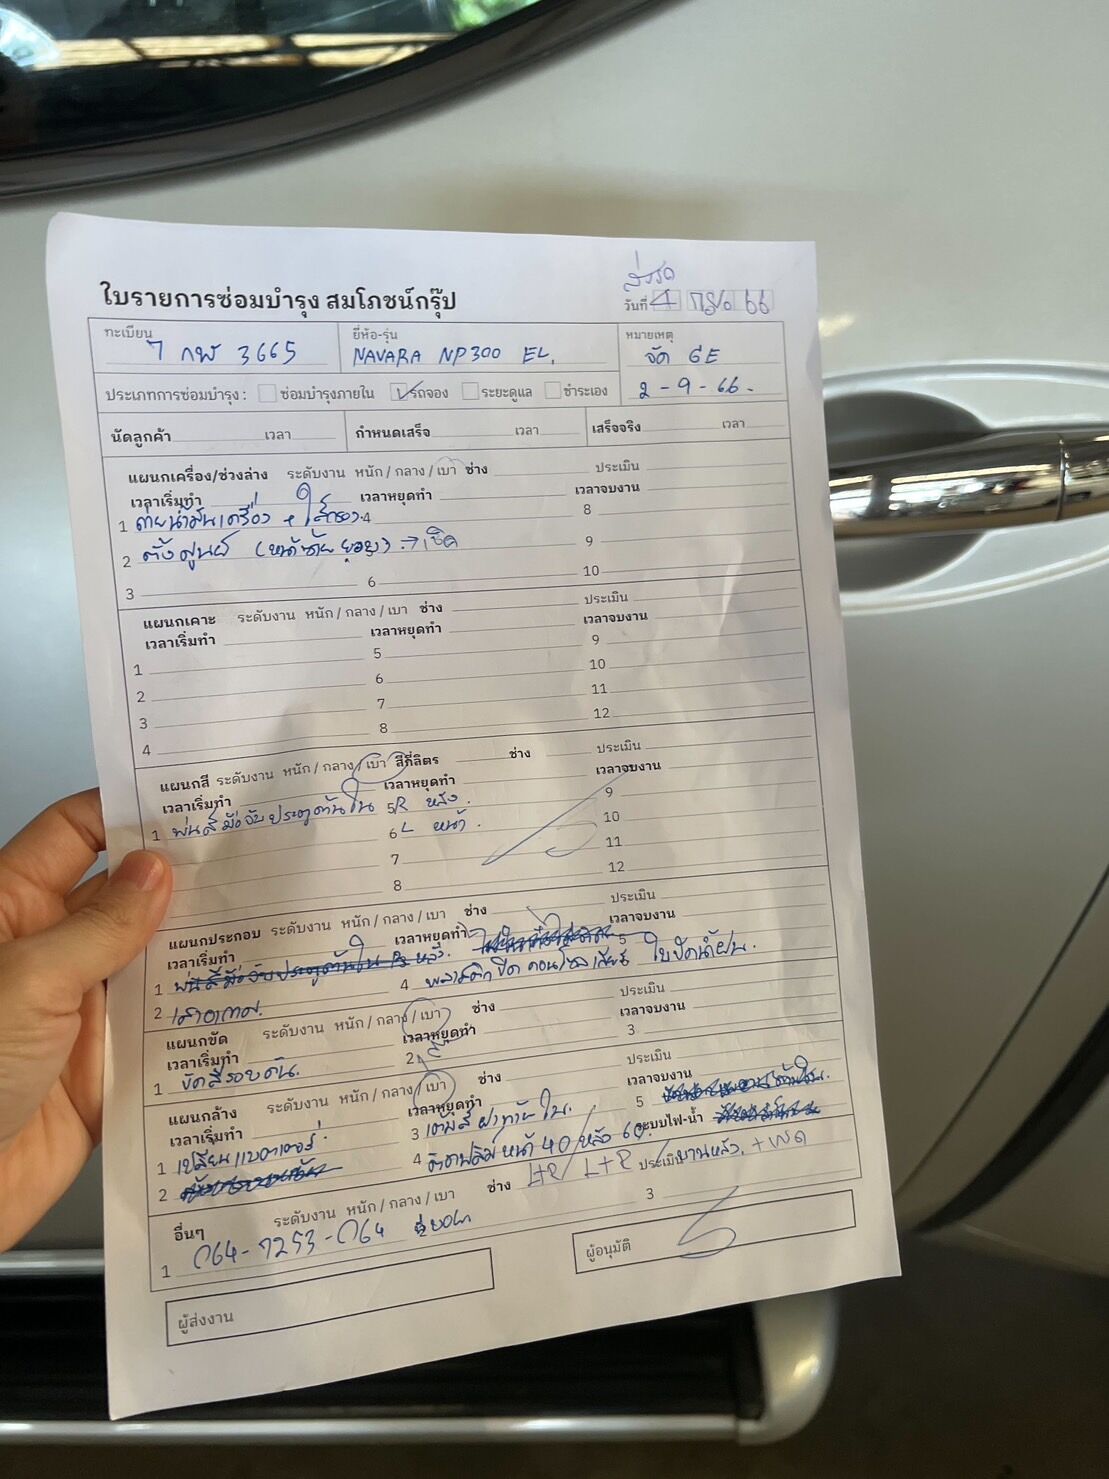 ใบรายการซ่อมบำรุง สมโภชน์กรุ๊ป
ส่งรถ
วันที่ 4 กย. 66
ทะเบียน 7 กฬ 3665
ยี่ห้อ-รุ่น NAVARA NP300 EL.
หมายเหตุ จัด GE
2-9-66.
ประเภทการซ่อมบำรุง : ซ่อมบำรุงภายใน รถจอง ระยะดูแล ชำระเอง
นัดลูกค้า เวลา กำหนดเสร็จ เวลา เสร็จจริง เวลา
แผนกเครื่อง/ช่วงล่าง ระดับงาน หนัก / กลาง / เบา ช่าง ประเมิน
เวลาเริ่มทำ เวลาหยุดทำ เวลาจบงาน
1 ถ่ายน้ำมันเครื่อง + ไส้กรอง. 4 8
2 ตั้งศูนย์ (หน้าซ้าย) → เช็ค 9
3 6 10
แผนกเคาะ ระดับงาน หนัก / กลาง / เบา ช่าง ประเมิน
เวลาเริ่มทำ เวลาหยุดทำ เวลาจบงาน
1 5 9
2 6 10
3 7 11
4 8 12
แผนกสี ระดับงาน หนัก / กลาง / เบา สีกี่ลิตร ช่าง ประเมิน
เวลาเริ่มทำ เวลาหยุดทำ เวลาจบงาน
1 พ่นสีมือจับประตูด้านใน 5 R หลัง. 9
6 L หน้า. 10
7 11
8 12
แผนกประกอบ ระดับงาน หนัก / กลาง / เบา ช่าง ประเมิน
เวลาเริ่มทำ เวลาหยุดทำ เวลาจบงาน
1 พ่นสีมือจับประตูด้านใน R หลัง. 5
2 เสาอากาศ. 4 พลาสติกปิดคอนโซลเกียร์ ใบปัดน้ำฝน.
แผนกขัด ระดับงาน หนัก / กลาง / เบา ช่าง ประเมิน
เวลาเริ่มทำ เวลาหยุดทำ เวลาจบงาน
1 ขัดสีรอบคัน. 2 3
แผนกล้าง ระดับงาน หนัก / กลาง / เบา ช่าง ประเมิน
เวลาเริ่มทำ เวลาหยุดทำ เวลาจบงาน
1 เปลี่ยนแบตเตอรี่. 3 ใน. 5
2 4 ติดฟิล์มหน้า 40 / หลัง 60. ระบบไฟ-น้ำ
อื่นๆ ระดับงาน หนัก / กลาง / เบา ช่าง L+R / L+R ประเมิน บานหลัง.
1 064-7253-064 3
ผู้ส่งงาน
ผู้อนุมัติ